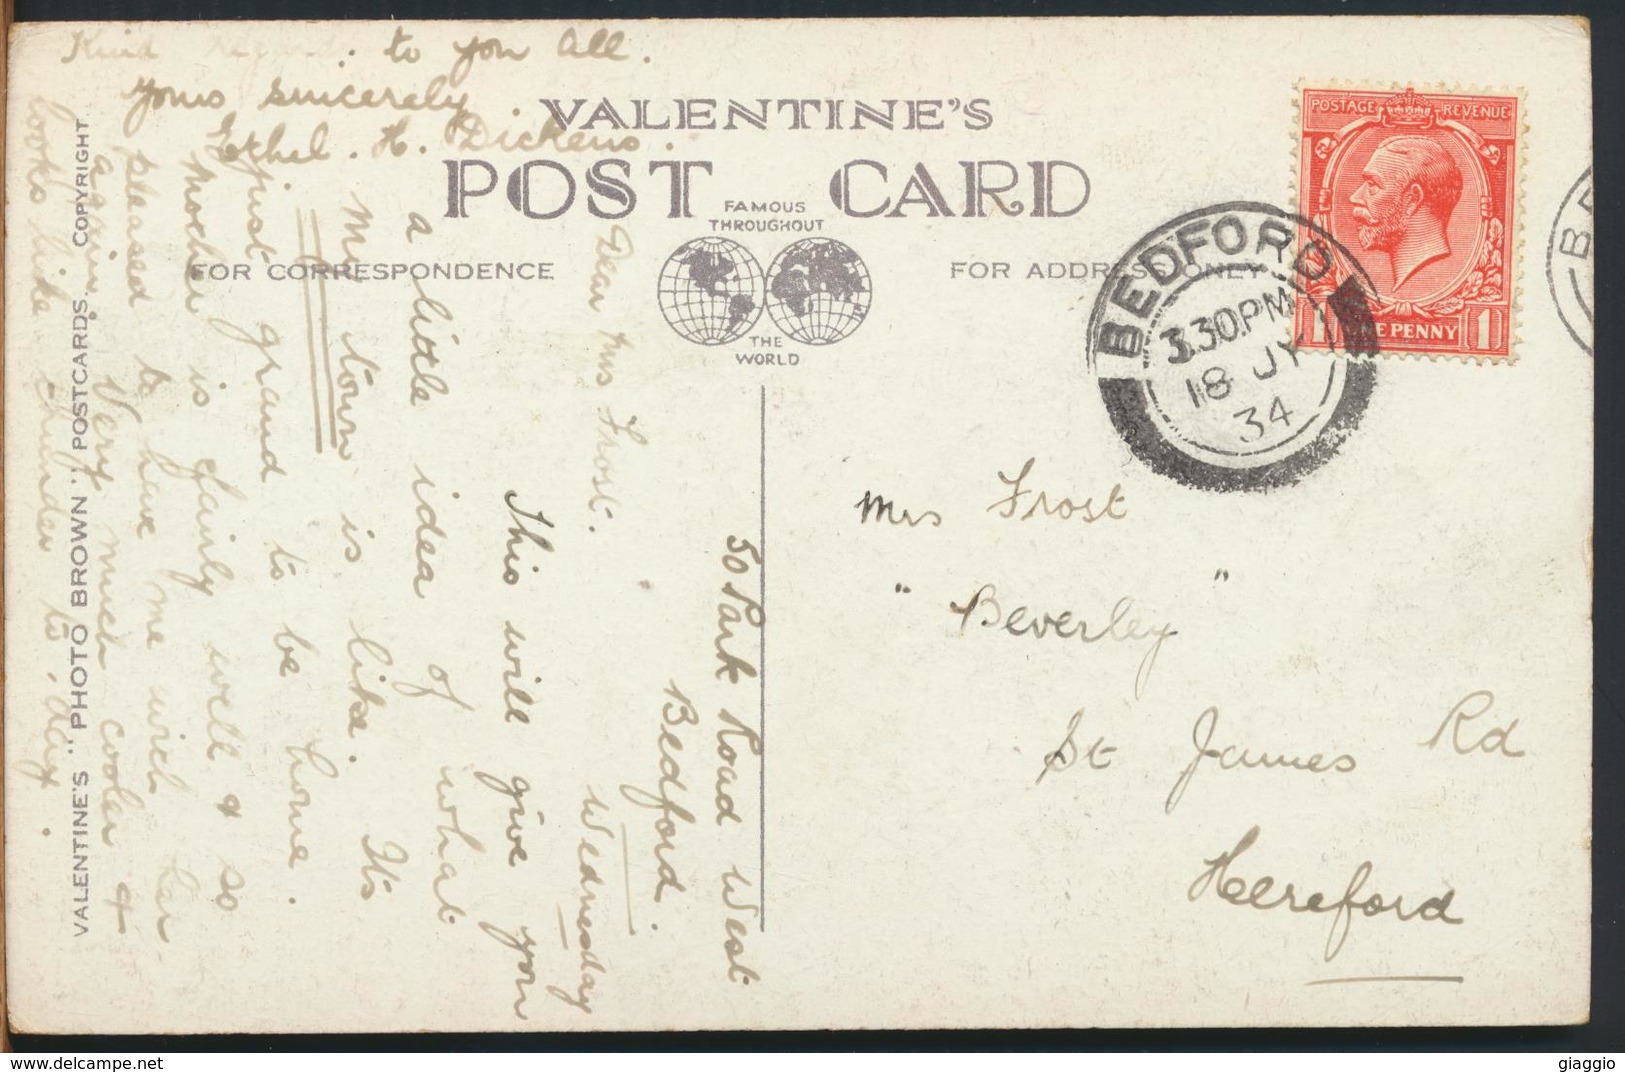 VALENTINE'S
POST CARD
FAMOUS
THROUGHOUT
THE
WORLD
FOR CORRESPONDENCE
FOR ADDRESS ONLY
VALENTINE'S "PHOTO BROWN" POSTCARDS. COPYRIGHT.
50 Park Road West
Bedford.
Wednesday
Dear Mrs Frost.
This will give you
a little idea of what
my town is like. It's
just grand to be home.
Mother is fairly well & so
pleased to have me with her
again. Very much cooler &
looks like thunder to-day.
Kind regards to you all.
Yours sincerely.
Ethel. H. Dickens.
POSTAGE REVENUE
1 ONE PENNY 1
BEDFORD
3.30PM
18 JY
34
BE
Mrs Frost
"Beverley"
St James Rd
Hereford
giaggio